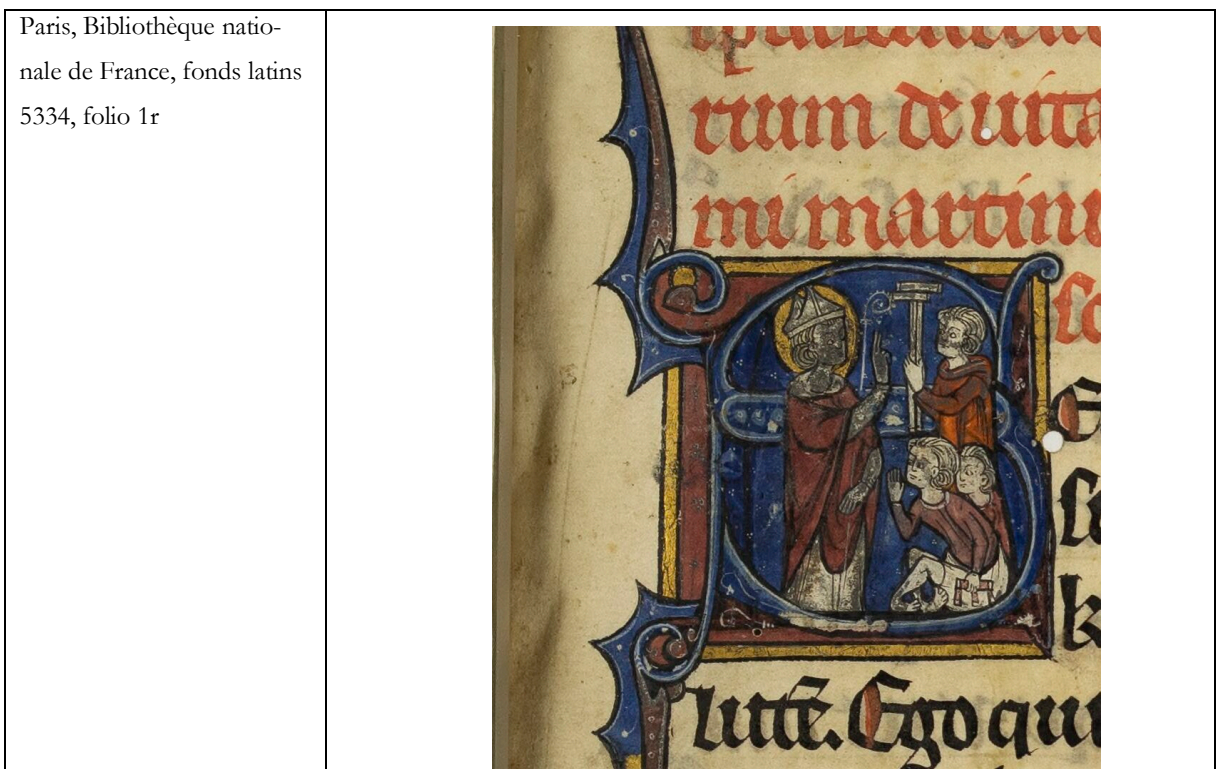 Paris, Bibliothèque natio-
nale de France, fonds latins
5334, folio 1r
rium de uita
mi martini
E
k
lutē. Ego qui